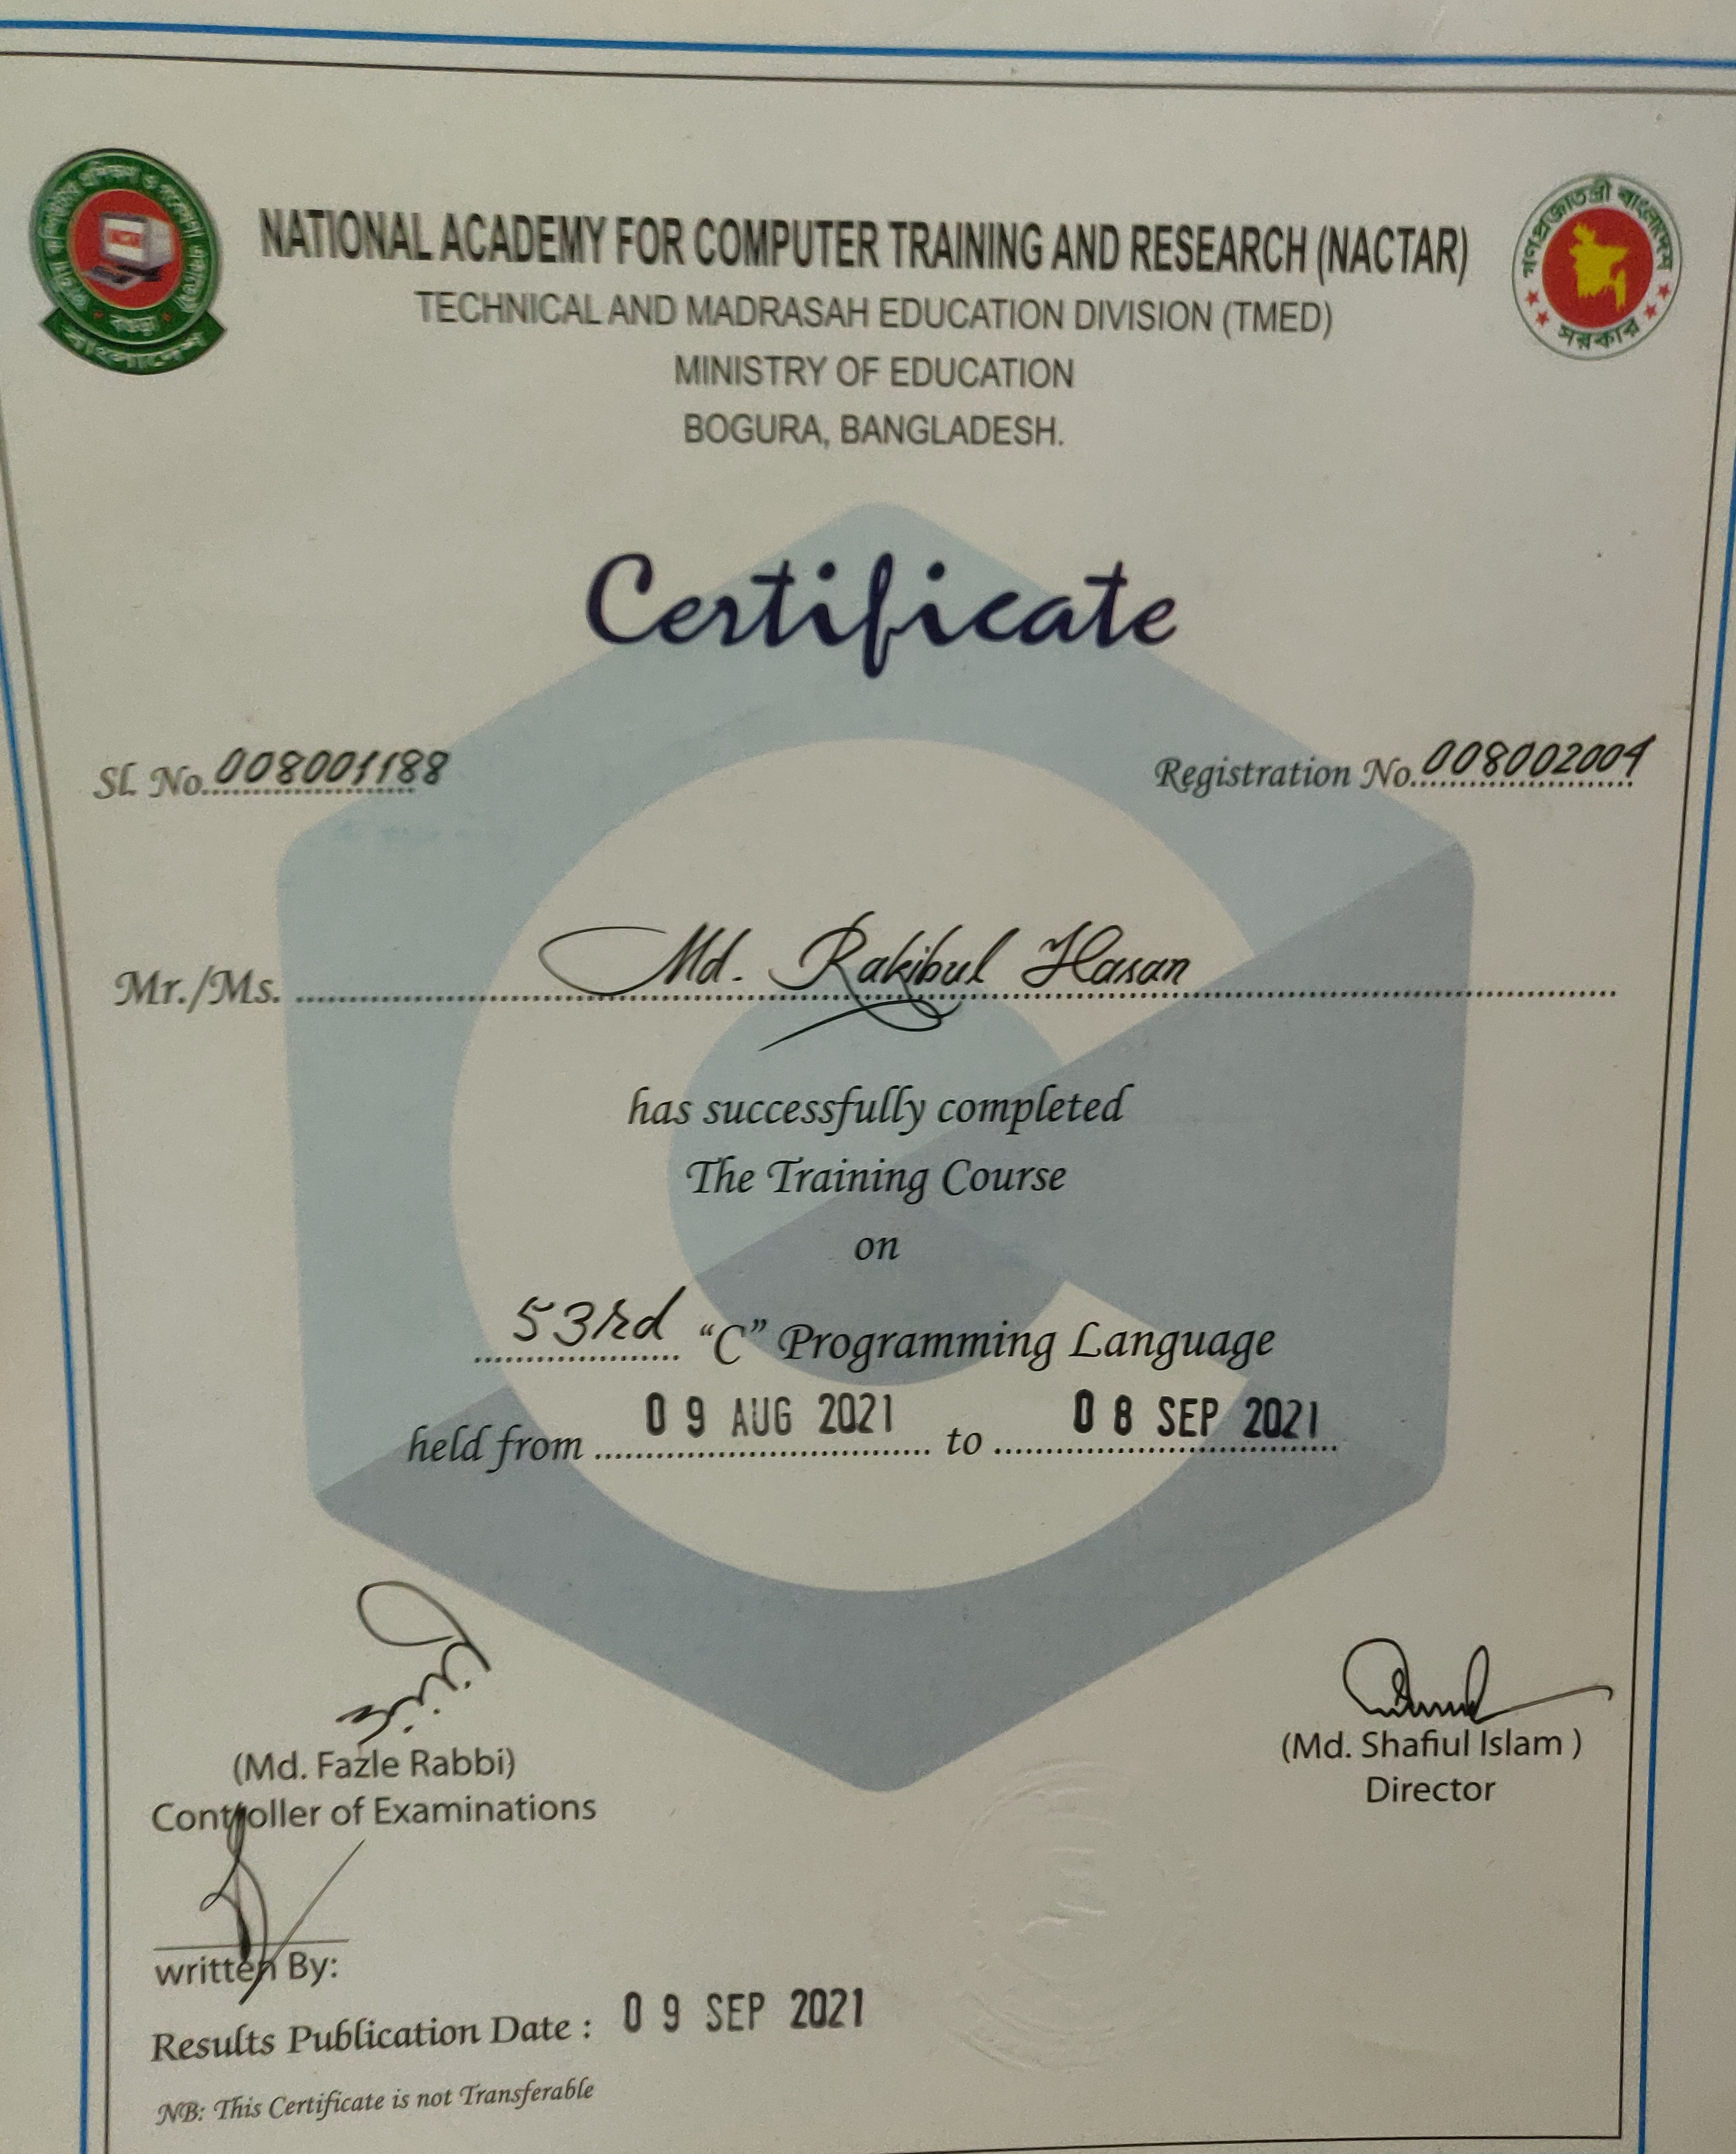 NATIONAL ACADEMY FOR COMPUTER TRAINING AND RESEARCH (NACTAR)
TECHNICAL AND MADRASAH EDUCATION DIVISION (TMED)
MINISTRY OF EDUCATION
BOGURA, BANGLADESH.
গণপ্রজাতন্ত্রী বাংলাদেশ
সরকার
বগুড়া
বাংলাদেশ
Certificate
Sl. No. 008001188
Registration No. 008002004
Mr./Ms. Md. Rakibul Hasan
has successfully completed
The Training Course
on
53rd "C" Programming Language
held from 09 AUG 2021 to 08 SEP 2021
(Md. Fazle Rabbi)
Controller of Examinations
(Md. Shafiul Islam )
Director
written By:
Results Publication Date : 09 SEP 2021
NB: This Certificate is not Transferable